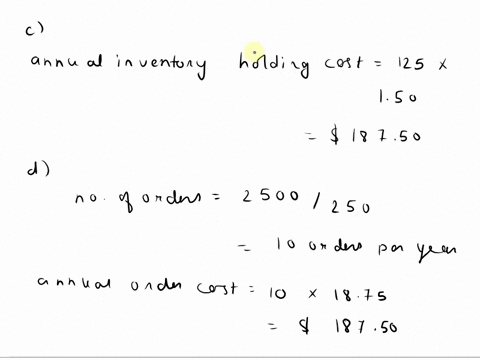 c)
annual inventory holding cost = 125 ×
1.50
= $ 187.50
d)
no. of orders = 2500 / 250
= 10 orders per year
annual order cost = 10 × 18.75
= $ 187.50